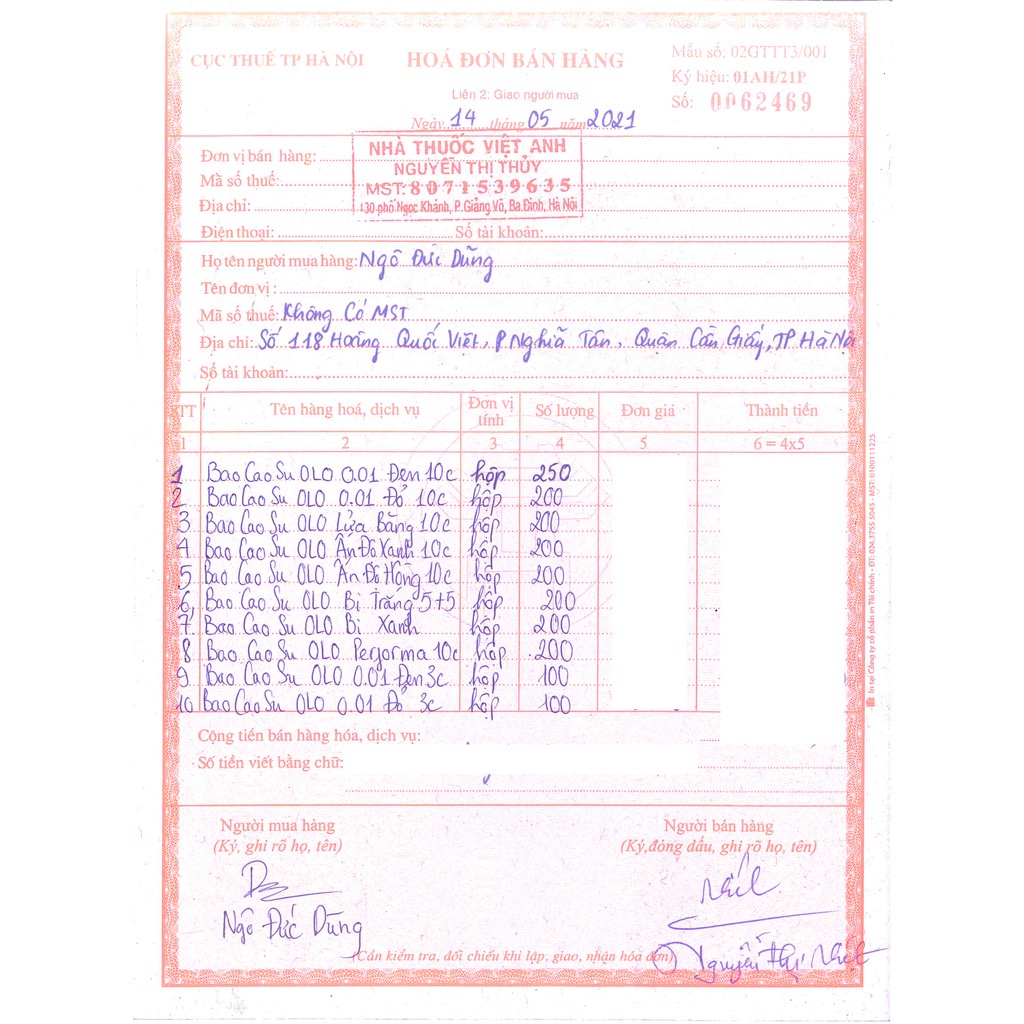 CỤC THUẾ TP HÀ NỘI
HOÁ ĐƠN BÁN HÀNG
Mẫu số: 02GTTT3/001
Ký hiệu: 01AH/21P
Số: 0062469
Liên 2: Giao người mua
Ngày 14 tháng 05 năm 2021
NHÀ THUỐC VIỆT ANH
NGUYỄN THỊ THỦY
MST: 8071539635
130 phố Ngọc Khánh, P.Giảng Võ, Ba Đình, Hà Nội
Đơn vị bán hàng:
Mã số thuế:
Địa chỉ:
Điện thoại: Số tài khoản:
Họ tên người mua hàng: Ngô Đức Dũng
Tên đơn vị:
Mã số thuế: Không Có MST
Địa chỉ: Số 118 Hoàng Quốc Việt, P Nghĩa Tân, Quận Cầu Giấy, TP Hà Nội
Số tài khoản:
STT Tên hàng hoá, dịch vụ Đơn vị tính Số lượng Đơn giá Thành tiền
1 2 3 4 5 6 = 4x5
1 Bao Cao Su OLO 0.01 Đen 10c hộp 250
2 Bao Cao Su OLO 0.01 Đỏ 10c hộp 200
3 Bao Cao Su OLO Lửa Băng 10c hộp 200
4 Bao Cao Su OLO Ấn Độ Xanh 10c hộp 200
5 Bao Cao Su OLO Ấn Độ Hồng 10c hộp 200
6 Bao Cao Su OLO Bi Trắng 5+5 hộp 200
7 Bao Cao Su OLO Bi Xanh hộp 200
8 Bao Cao Su OLO Performa 10c hộp 200
9 Bao Cao Su OLO 0.01 Đen 3c hộp 100
10 Bao Cao Su OLO 0.01 Đỏ 3c hộp 100
Cộng tiền bán hàng hóa, dịch vụ:
Số tiền viết bằng chữ:
Người mua hàng
(Ký, ghi rõ họ, tên)
Ngô Đức Dũng
Người bán hàng
(Ký,đóng dấu, ghi rõ họ, tên)
Nguyễn Thị
(Cần kiểm tra, đối chiếu khi lập, giao, nhận hóa đơn)
In tại Công ty cổ phần in Tài chính - ĐT: 024.3755 5045 - MST: 0100111225